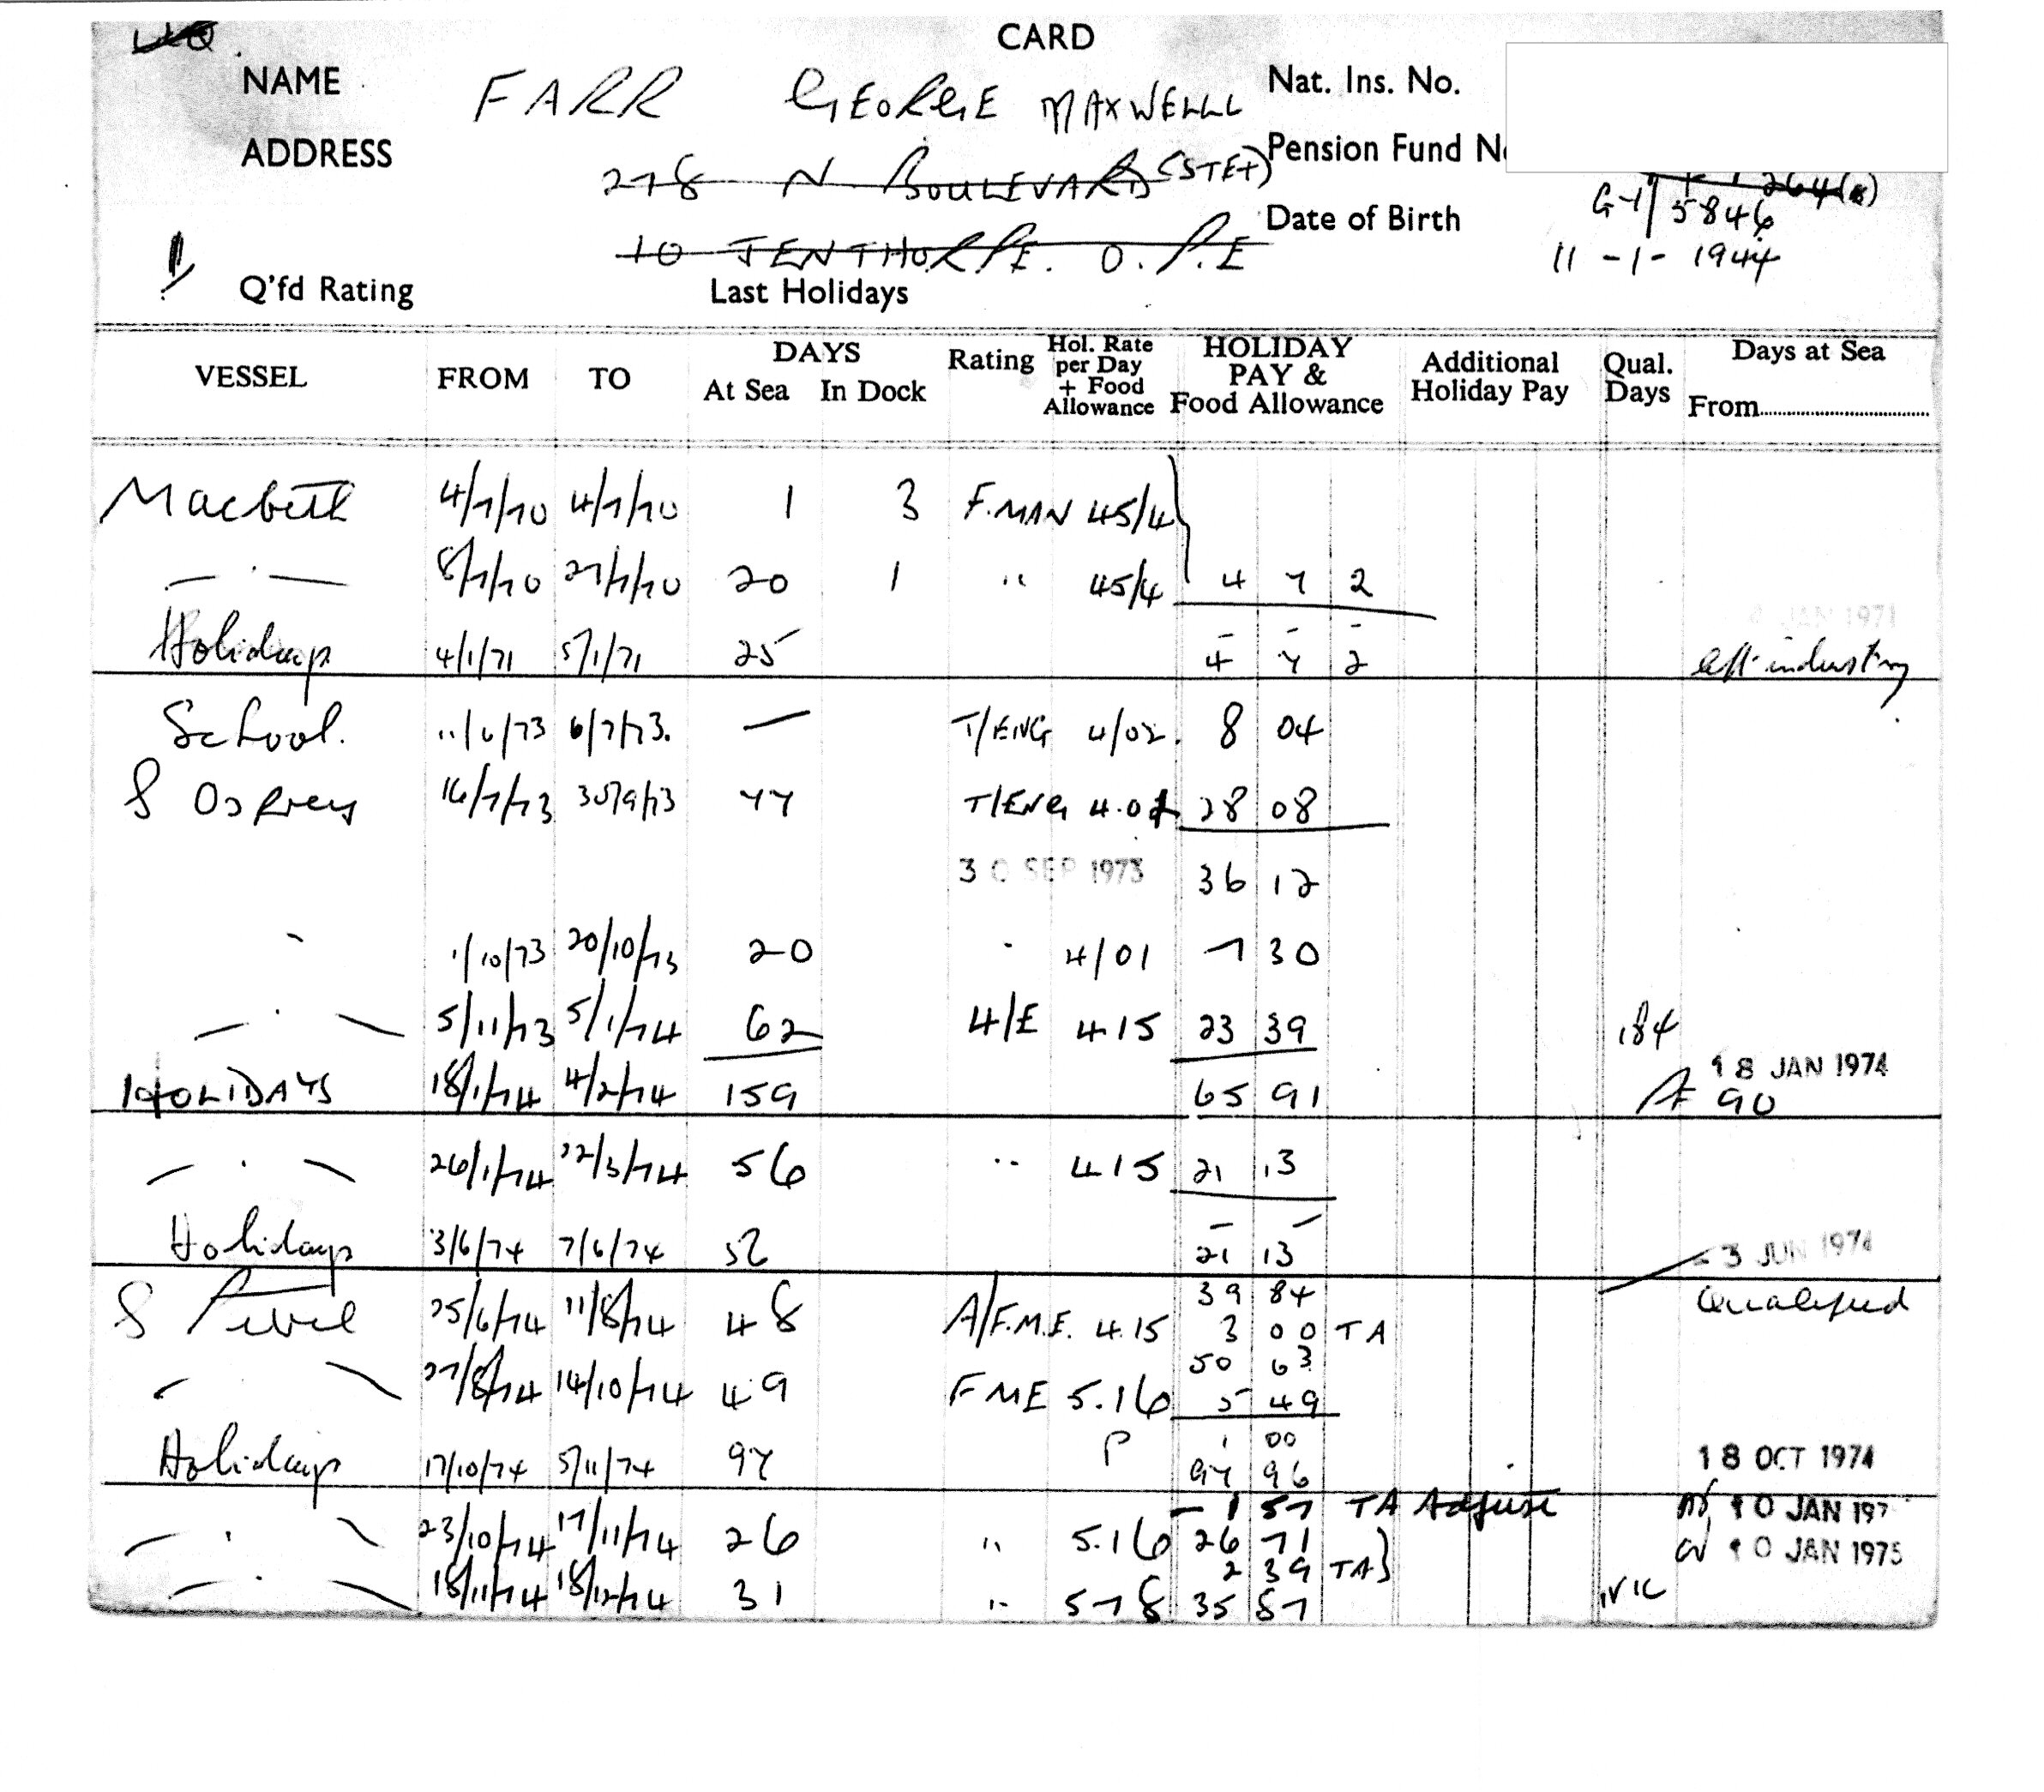 CARD
NAME FARR GEORGE MAXWELLL Nat. Ins. No.
ADDRESS 278 N. BOULEVARD (STET) Pension Fund N
264(8)
G-1/5846
10 JENTHORPE. O.P.E Date of Birth 11 - 1 - 1944
Q'fd Rating Last Holidays
VESSEL FROM TO DAYS At Sea In Dock Rating Hol. Rate per Day + Food Allowance HOLIDAY PAY & Food Allowance Additional Holiday Pay Qual. Days Days at Sea From
Macbeth 4/7/70 4/7/70 1 3 F.MAN 45/4
— " — 8/7/70 27/7/70 20 1 " 45/4 4 7 2
JAN 1971
Holidays 4/1/71 5/1/71 25 4 7 2 left industry
School. 11/6/73 6/7/73. — T/ENG 4/02. 8 04
S Osprey 16/7/73 30/9/73 77 T/ENG 4.01 28 08
30 SEP 1973 36 12
" 1/10/73 20/10/73 20 " 4/01 7 30
— " — 5/11/73 5/1/74 62 4/E 415 23 39 184
18 JAN 1974
HOLIDAYS 18/1/74 4/2/74 159 65 91 90
— " — 26/1/74 22/3/74 56 " 415 21 13
Holidays 3/6/74 7/6/74 56 21 13 - 3 JUN 1974
39 84 Qualified
S 25/6/74 11/8/74 48 A/F.M.E. 4.15 3 00 TA
50 63
— " — 27/8/74 14/10/74 49 FME 5.16 5 49
P 1 00
Holidays 17/10/74 5/11/74 97 97 96 18 OCT 1974
- 1 57 TA Adjust 10 JAN 197
— " — 23/10/74 17/11/74 26 " 5.16 26 71 10 JAN 1975
2 39 TA)
— " — 18/11/74 18/12/74 31 " 578 35 87